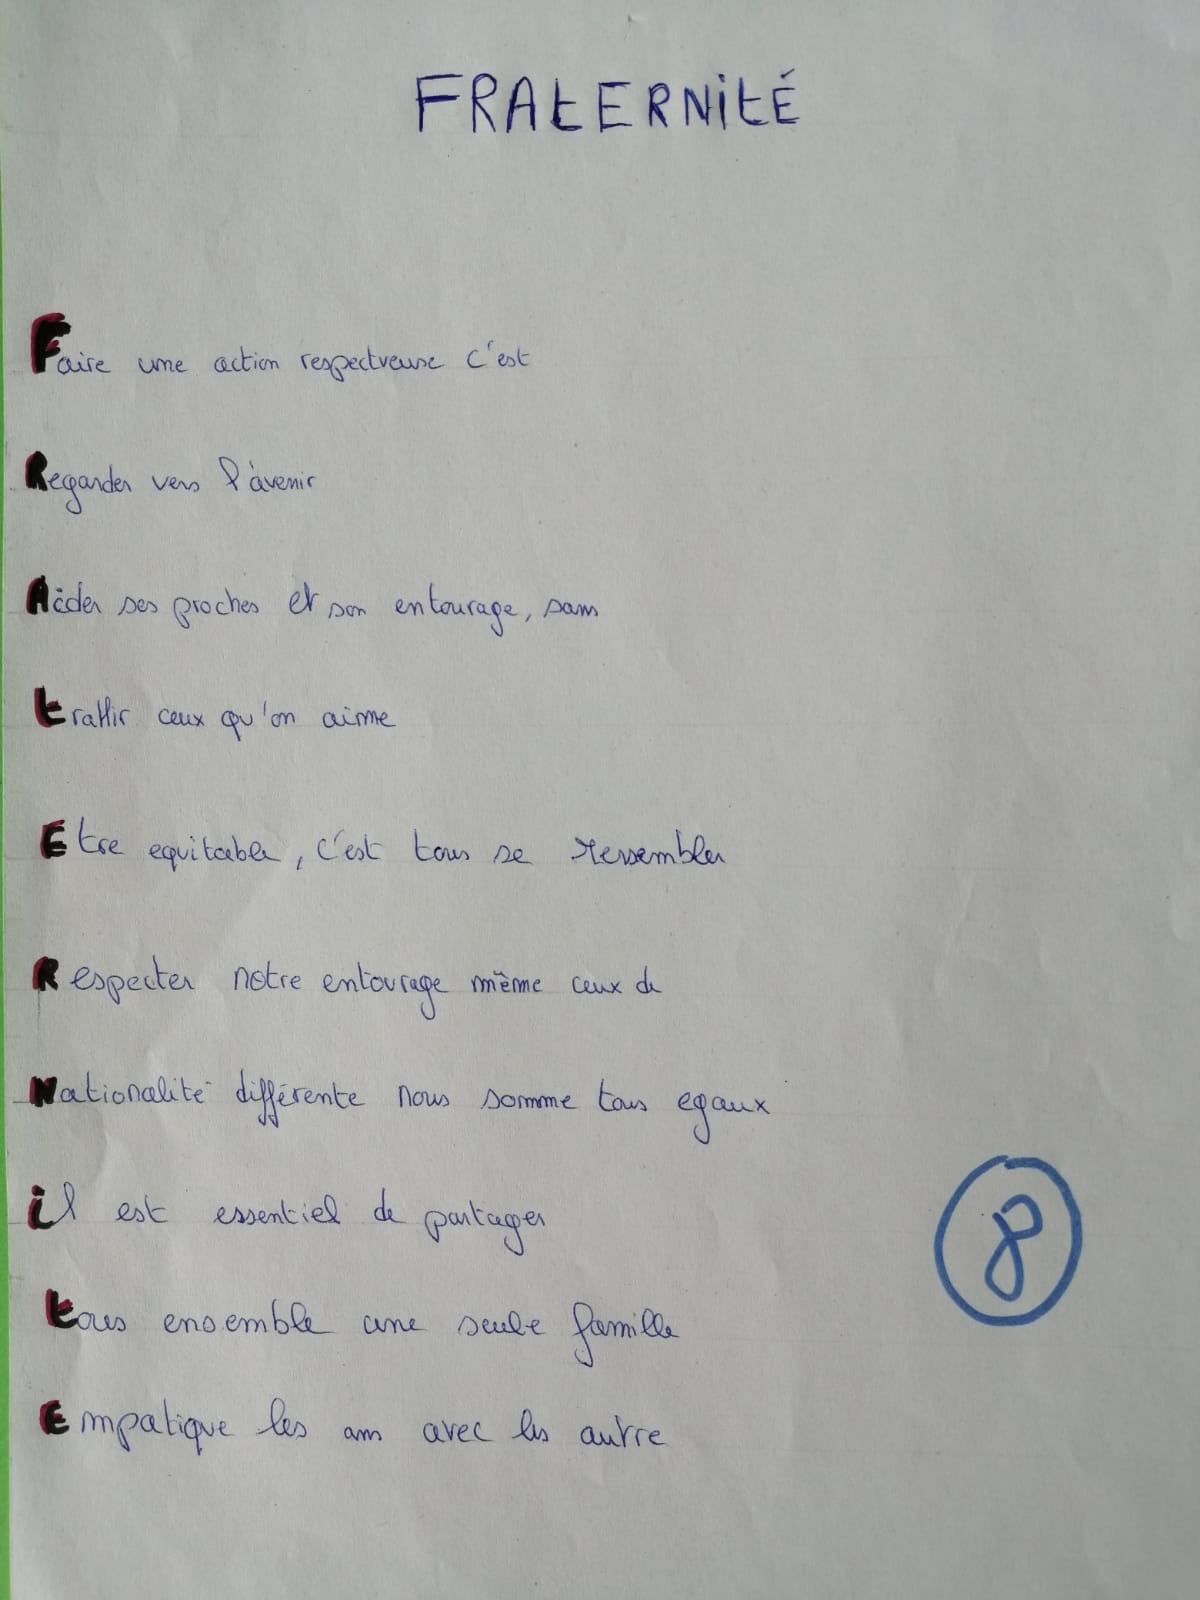 FRATERNITÉ
Faire une action respectueuse c'est
Regarder vers l'àvenir
Aider ses proches et son entourage, sans
trahir ceux qu'on aime
Etre equitable, c'est tous se ressembler
Respecter notre entourage même ceux de
Nationalité différente nous somme tous egaux
il est essentiel de partager
tous ensemble une seule famille
Empatique les uns avec les autre
8